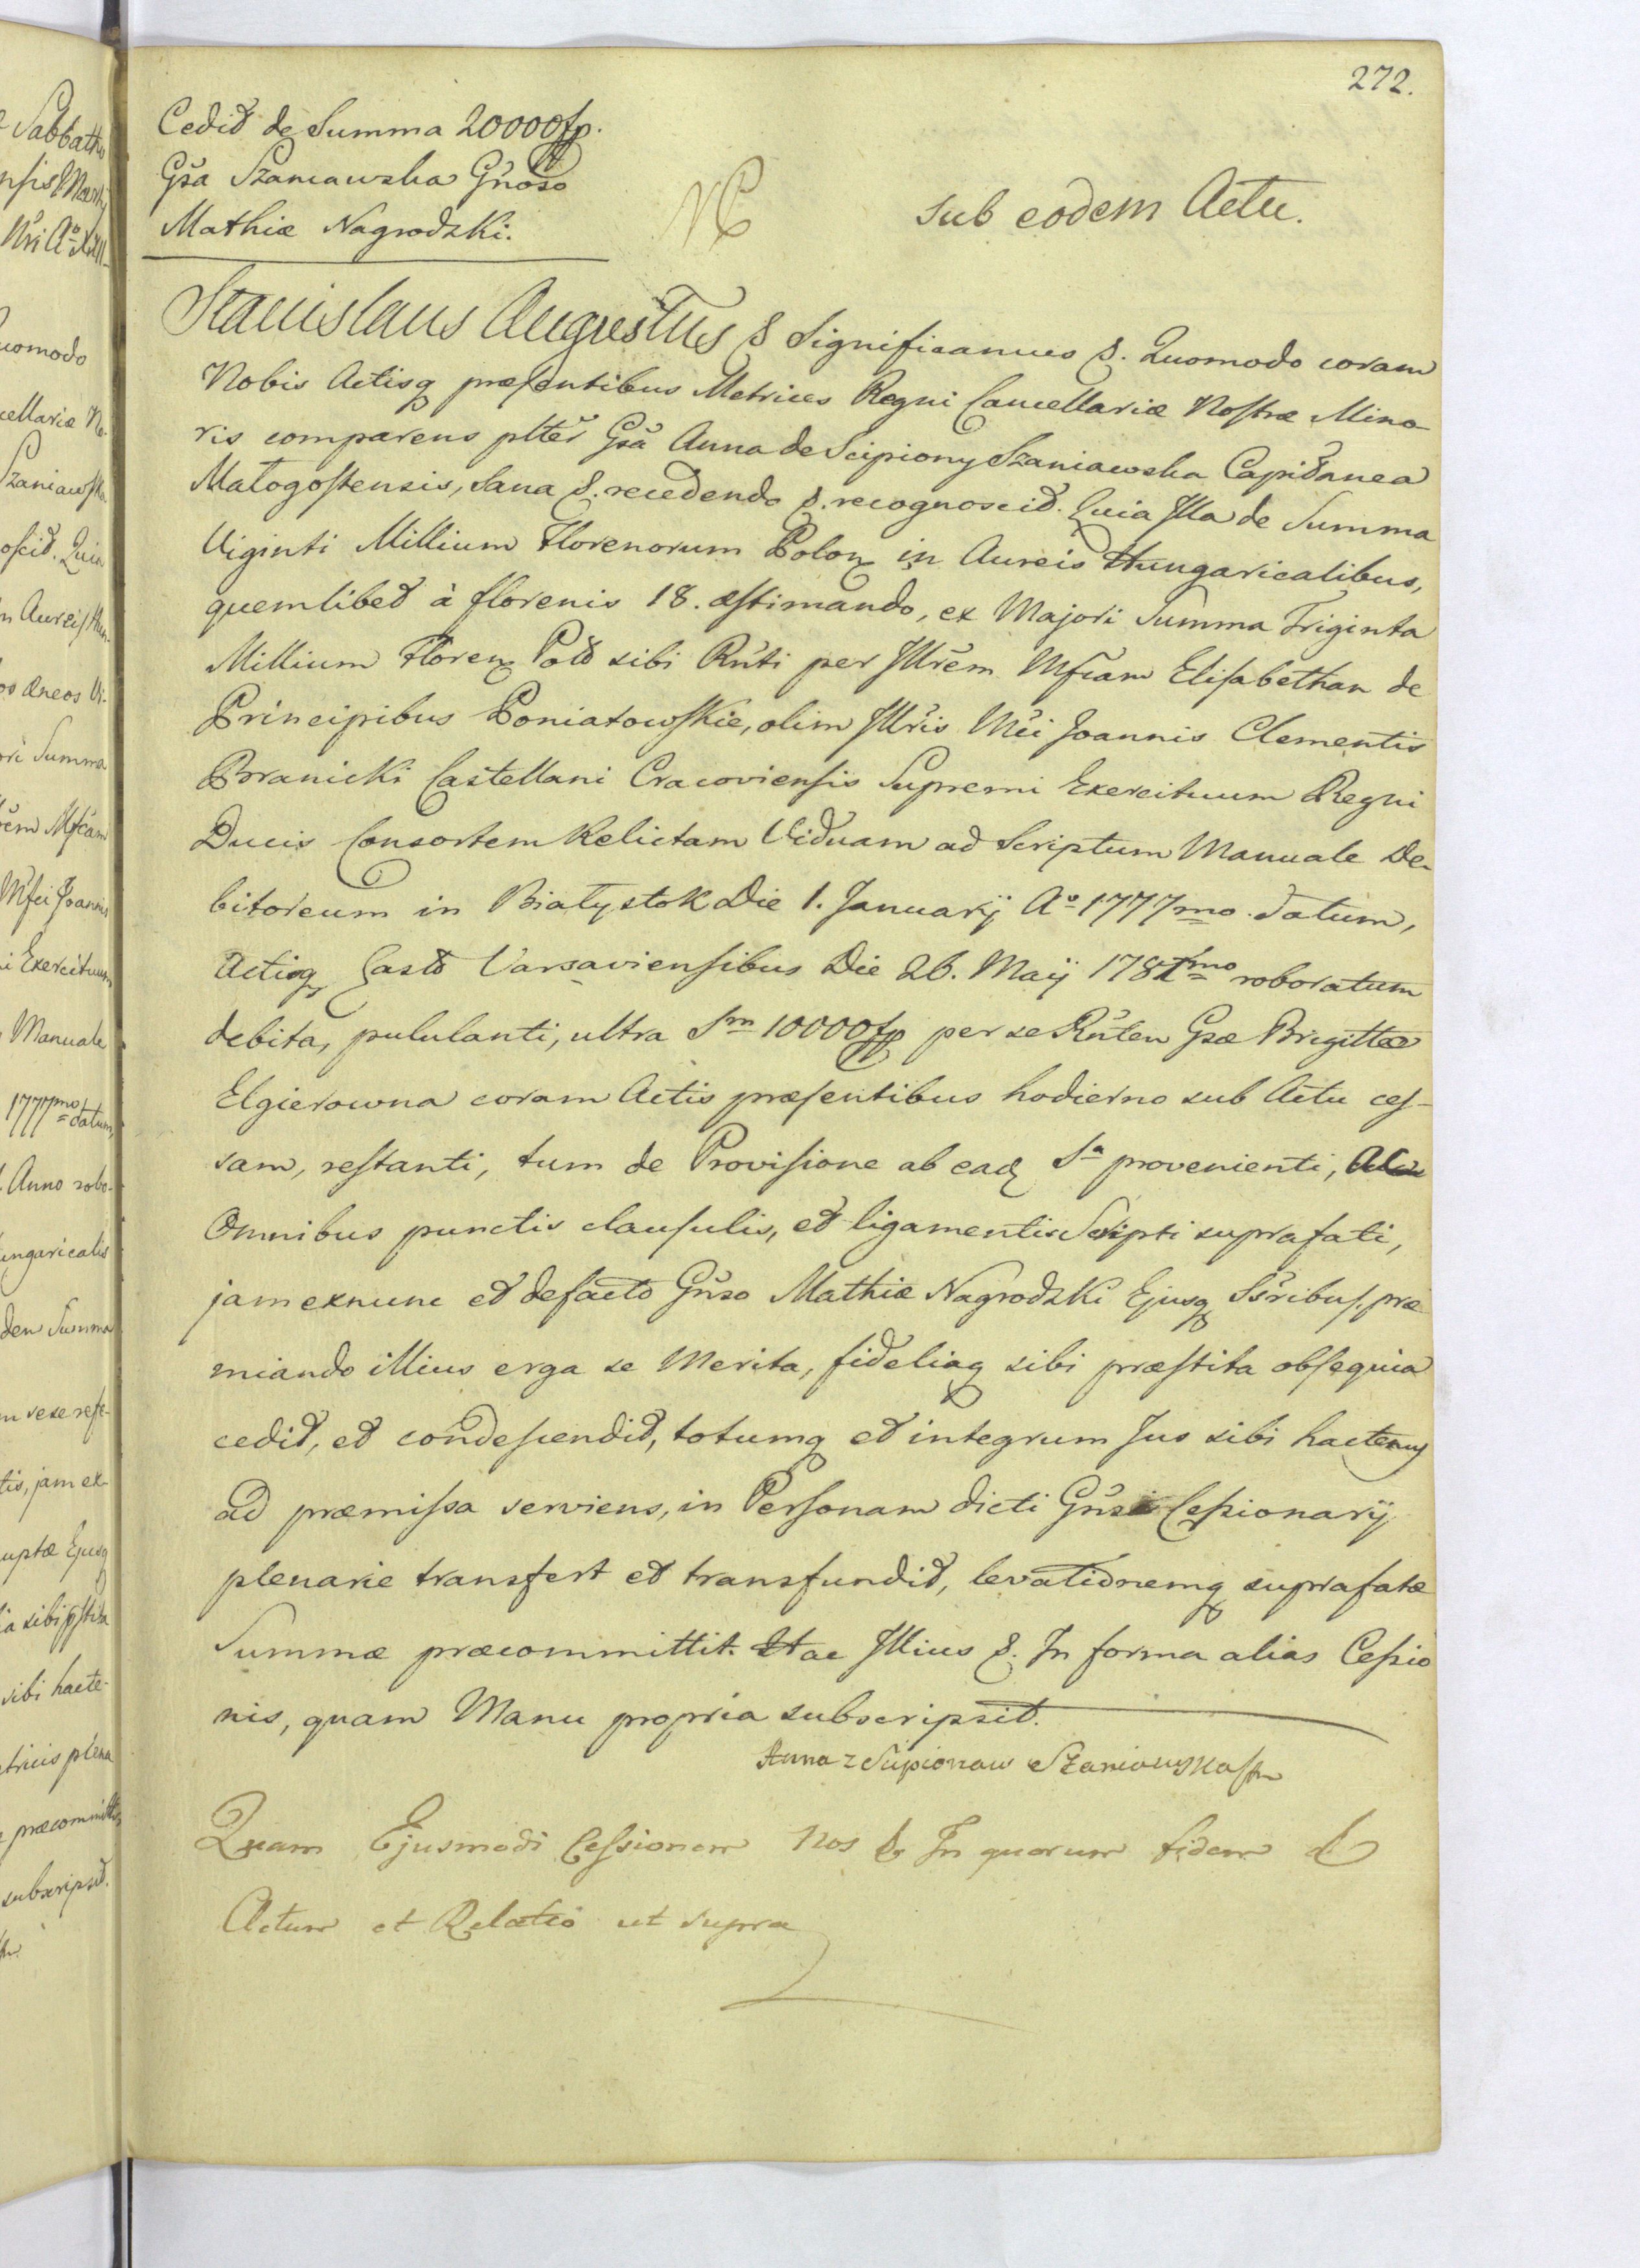 272.
Cedit de Summa 20000 fp.
Gsa Szaniawska Gnoso
Mathiæ Nagrodzki.
sub eodem Actu.
Stanislaus Augustus & Significamus &. Quomodo coram
Nobis Actisq præsentibus Metrices Regni Cancellariæ Nostræ Mino
ris comparens plter Gsa Anna de Scipiony Szaniawska Capitanea
Małogostensis, sana &. recedendo &. recognoscit. Quia Illa de Summa
Viginti Millium Florenorum Polon in Aureis Hungaricalibus,
quemlibet à florenis 18. æstimando, ex Majori Summa Triginta
Millium Floren Pol sibi Rnti per Illrem Mfcam Elisabetham de
Principibus Poniatowskie, olim Illris Mci Joannis Clementis
Branicki Castellani Cracoviensis Supremi Exercituum Regni
Ducis Consortem Relictam Viduam ad Scriptum Manuale De-
bitoreum in Białystok Die 1. Januarij Aº 1777mo datum,
Actisq Castr Varsaviensibus Die 26. Maij 1781mo roboratum
debita, pululanti, ultra Sm 10000 fp per se Rnten Gsæ Brigittæ
Elgierowna coram Actis præsentibus hodierno sub Actu ces-
sam, restanti, tum de Provisione ab ead Sa provenienti, ac
Omnibus punctis clausulis, et ligamentis Scripti suprafati,
jam exnunc et defacto Gnso Mathiæ Nagrodzki Ejusq Ssribus, præ
miando illius erga se Merita, fideliaq sibi præstita obsequia
cedit, et condescendit, totumq et integrum Jus sibi hactenus
ad præmissa serviens, in Personam dicti Gnsi Cessionarij
plenarie transfert et transfundit, levationemq suprafatæ
Summæ præcommittit. Hac Illius &. In forma alias Cessio
nis, quam Manu propria subscripsit.
Anna z Scipionow Szaniawska
Quam Ejusmodi Cessionem Nos & In quorum fidem &
Actum et Relatio ut supra